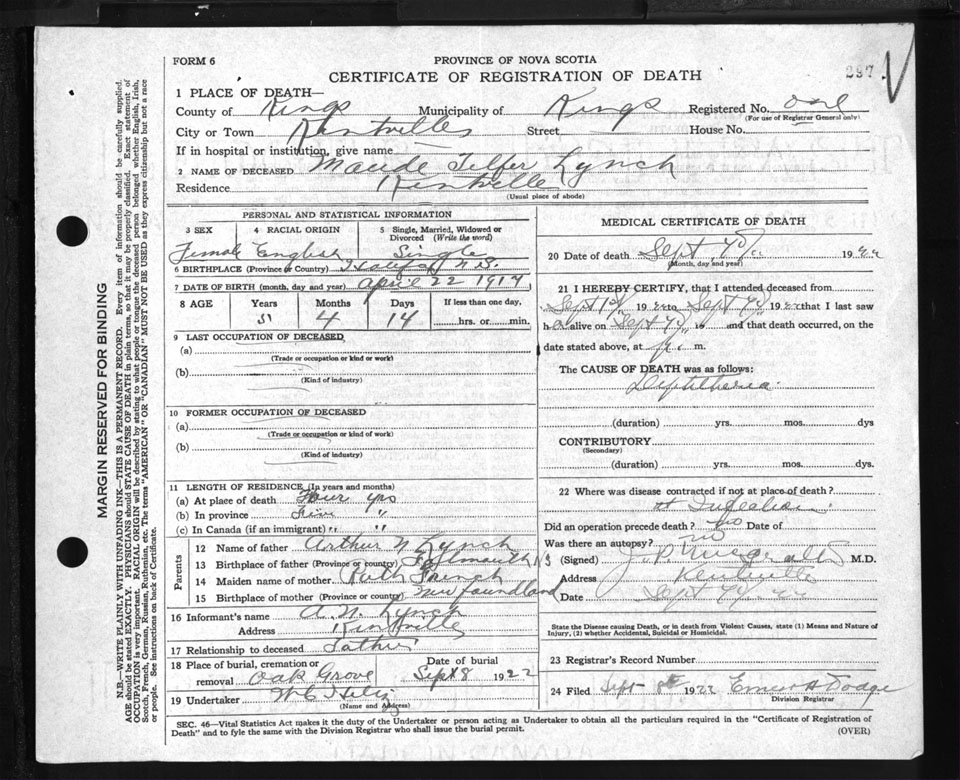 FORM 6
PROVINCE OF NOVA SCOTIA
CERTIFICATE OF REGISTRATION OF DEATH
287
1 PLACE OF DEATH—
County of Kings Municipality of Kings Registered No. one
(For use of Registrar General only)
City or Town Kentville Street House No.
If in hospital or institution, give name
2 NAME OF DECEASED Maude Telfer Lynch
Residence Kentville
(Usual place of abode)
PERSONAL AND STATISTICAL INFORMATION
3 SEX 4 RACIAL ORIGIN 5 Single, Married, Widowed or Divorced (Write the word)
Female English Single
6 BIRTHPLACE (Province or Country) Halifax N.S.
7 DATE OF BIRTH (month, day and year) April 22 1917
8 AGE Years Months Days If less than one day,
5 4 14 hrs. or min.
9 LAST OCCUPATION OF DECEASED
(a)
(Trade or occupation or kind or work)
(b)
(Kind of industry)
10 FORMER OCCUPATION OF DECEASED
(a)
(Trade or occupation or kind of work)
(b)
(Kind of industry)
11 LENGTH OF RESIDENCE (In years and months)
(a) At place of death Four yrs
(b) In province Five "
(c) In Canada (if an immigrant) " "
Parents
12 Name of father Arthur N Lynch
13 Birthplace of father (Province or country) Falmouth NS
14 Maiden name of mother Ruth French
15 Birthplace of mother (Province or country) Newfoundland
16 Informant's name A. N. Lynch
Address Kentville
17 Relationship to deceased Father
18 Place of burial, cremation or removal Oak Grove Date of burial Sept 8 1922
19 Undertaker W C
(Name and Address)
MEDICAL CERTIFICATE OF DEATH
20 Date of death Sept 7th 1922
(Month, day and year)
21 I HEREBY CERTIFY, that I attended deceased from
Sept 1st 1922 to Sept 7th 1922 that I last saw
h alive on Sept 7th and that death occurred, on the
date stated above, at m.
The CAUSE OF DEATH was as follows:
Diphtheria
(duration) yrs. mos. days
CONTRIBUTORY
(Secondary)
(duration) yrs. mos. dys.
22 Where was disease contracted if not at place of death?
Did an operation precede death? no Date of
Was there an autopsy? no
(Signed) M.D.
Address Kentville
Date Sept 7th 22
State the Disease causing Death, or in death from Violent Causes, state (1) Means and Nature of
Injury, (2) whether Accidental, Suicidal or Homicidal.
23 Registrar's Record Number
24 Filed Sept 8th 1922 Dodge
Division Registrar
SEC. 46—Vital Statistics Act makes it the duty of the Undertaker or person acting as Undertaker to obtain all the particulars required in the "Certificate of Registration of
Death" and to fyle the same with the Division Registrar who shall issue the burial permit.
(OVER)
MARGIN RESERVED FOR BINDING
N.B.—WRITE PLAINLY WITH UNFADING INK—THIS IS A PERMANENT RECORD. Every item of information should be carefully supplied.
AGE should be stated EXACTLY. PHYSICIANS should STATE CAUSE OF DEATH in plain terms, so that it may be properly classified. Exact statement of
OCCUPATION is very important. RACIAL ORIGIN will be described by stating to what people or tongue the deceased person belonged whether English, Irish,
Scotch, French, German, Russian, Ruthenian, etc. The terms "AMERICAN" OR "CANADIAN" MUST NOT BE USED as they express citizenship but not a race
or people. See instructions on back of Certificate.